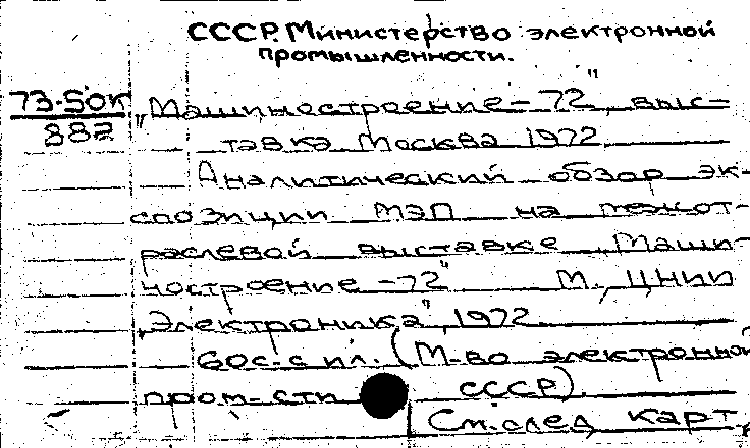 СССР. Министерство электронной
промышленности.
73-50к
882
„Машиностроение-72", выс-
тавка Москва 1972.
Аналитический обзор эк-
спозиции МЭП на межот-
раслевой выставке „Маши-
ностроение-72" М., ЦНИИ
„Электроника", 1972
60с. с ил. (М-во электронной
пром-сти СССР).
См. след карт